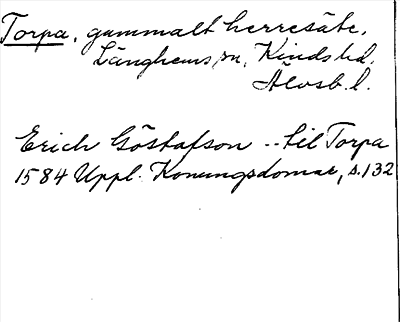 Torpa, gammalt herresäte,
Länghems sn, Kinds hd,
Älvsb. l.
Erich Göstafson -- til Torpa
1584 Uppl. Konungsdomar, s. 132